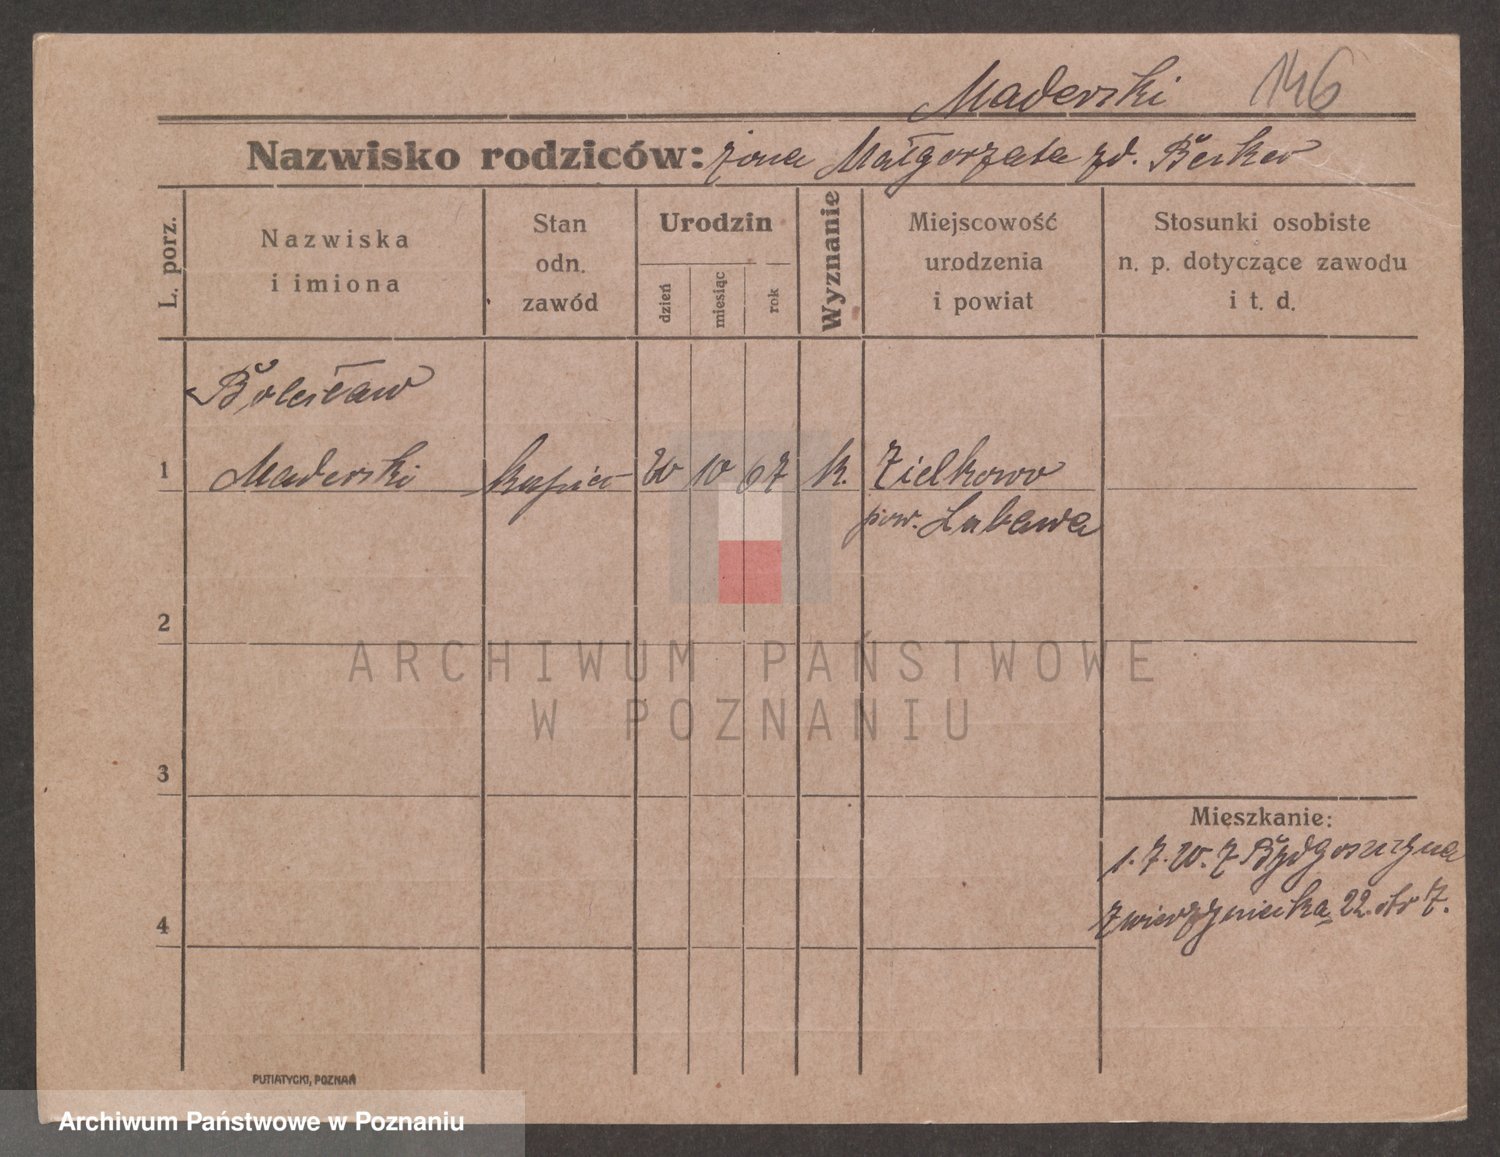 Maderski 146
Nazwisko rodziców: żona Małgorzata zd. Becker
L. porz.
Nazwiska
i imiona
Stan
odn.
zawód
Urodzin
dzień
miesiąc
rok
Wyznanie
Miejscowość
urodzenia
i powiat
Stosunki osobiste
n. p. dotyczące zawodu
i t. d.
Bolesław
1 Maderski kupiec 20 10 67 k. Zielkowo
pow. Lubawa
2
ARCHIWUM PAŃSTWOWE
W POZNANIU
3
Mieszkanie:
1. 7. 20. z Bydgoszczyna
4 Zwierzyniecka 22. 7.
PUTIATYCKI, POZNAŃ
Archiwum Państwowe w Poznaniu